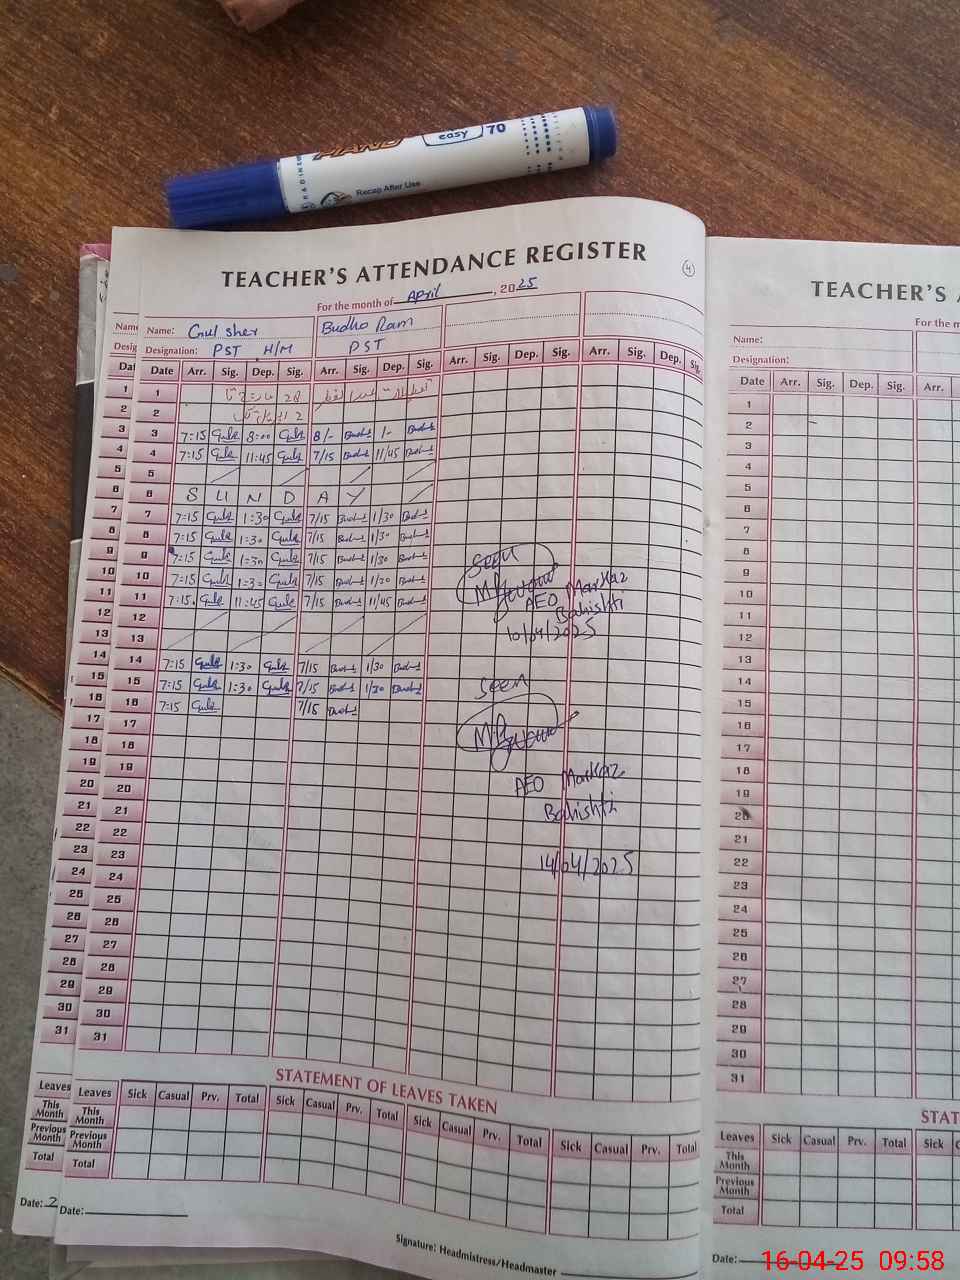 easy 70
Recap After Use
TEACHER'S ATTENDANCE REGISTER
4
For the month of April, 2025
Name: Gul sher Budho Ram
Designation: PST H/M PST
Date Arr. Sig. Dep. Sig. Arr. Sig. Dep. Sig. Arr. Sig. Dep. Sig. Arr. Sig. Dep. Sig.
1
2
3 7:15 Guls 8:00 Guls 8/- Budho 1/-
4 7:15 Guls 11:45 Guls 7/15 Budho 11/45 Budho
5
6 S U N D A Y
7 7:15 Guls 1:30 Guls 7/15 Budho 1/30 Budho
8 7:15 Guls 1:30 Guls 7/15 Budho 1/30 Budho
9 7:15 Guls 1:30 Guls 7/15 Budho 1/30 Budho
10 7:15 Guls 1:30 Guls 7/15 Budho 1/30 Budho
11 7:15 Guls 11:45 Guls 7/15 Budho 11/45 Budho
12
13
14 7:15 Guls 1:30 Guls 7/15 Budho 1/30 Budho
15 7:15 Guls 1:30 Guls 7/15 Budho 1/30 Budho
16 7:15 Guls 7/15 Budho
17
18
19
20
21
22
23
24
25
26
27
28
29
30
31
Seen
AEO Markaz
Bahishti
10/04/2025
Seen
AEO Markaz
Bahishti
14/04/2025
STATEMENT OF LEAVES TAKEN
Leaves Sick Casual Prv. Total Sick Casual Prv. Total Sick Casual Prv. Total Sick Casual Prv. Total
This Month
Previous Month
Total
Date:
Signature: Headmistress/Headmaster
TEACHER'S
For the m
Name:
Designation:
Date Arr. Sig. Dep. Sig. Arr.
1
2
3
4
5
6
7
8
9
10
11
12
13
14
15
16
17
18
19
20
21
22
23
24
25
26
27
28
29
30
31
STAT
Leaves Sick Casual Prv. Total Sick
This Month
Previous Month
Total
Date:
16-04-25 09:58